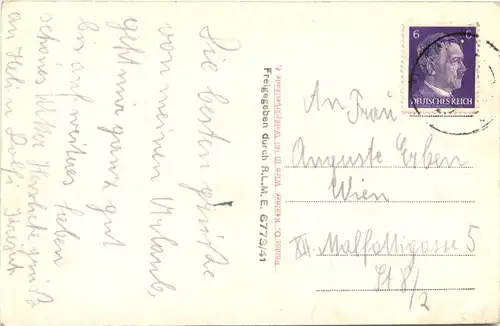 Die besten Grüße
von meinen Urlaub,
geht mir ganz gut
bis auf weiteres haben
schönes Wetter Herzliche grüße
an Heli u
Freigegeben durch R.L.M.E. 6773/41
6
DEUTSCHES REICH
An Frau
Auguste Erben
Wien
XII. Malfattigasse 5
St 8/2